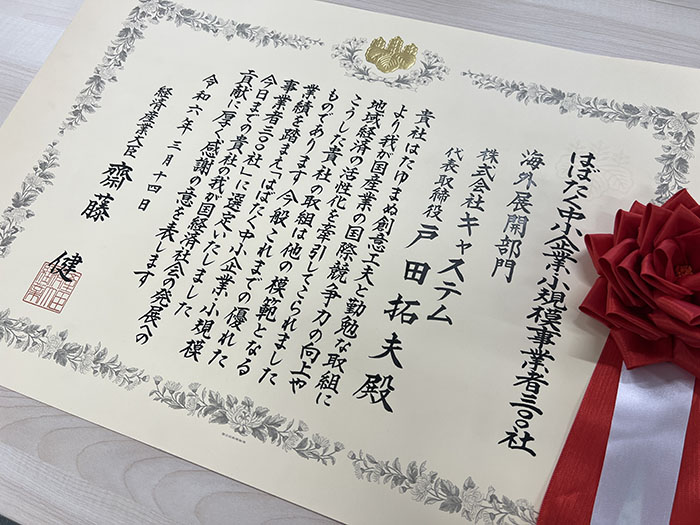 はばたく中小企業・小規模事業者三〇〇社
海外展開部門
株式会社キャステム
代表取締役 戸田拓夫殿
貴社はたゆまぬ創意工夫と勤勉な取組に
より我が国産業の国際競争力の向上や
地域経済の活性化を牽引してこられました
こうした貴社の取組は他の模範となる
ものであります 今般これまでの優れた
業績を踏まえ「はばたく中小企業・小規模
事業者三〇〇社」に選定いたしました
今日までの貴社の我が国経済社会の発展への
貢献に厚く感謝の意を表します
令和六年三月十四日
経済産業大臣 齋藤 健